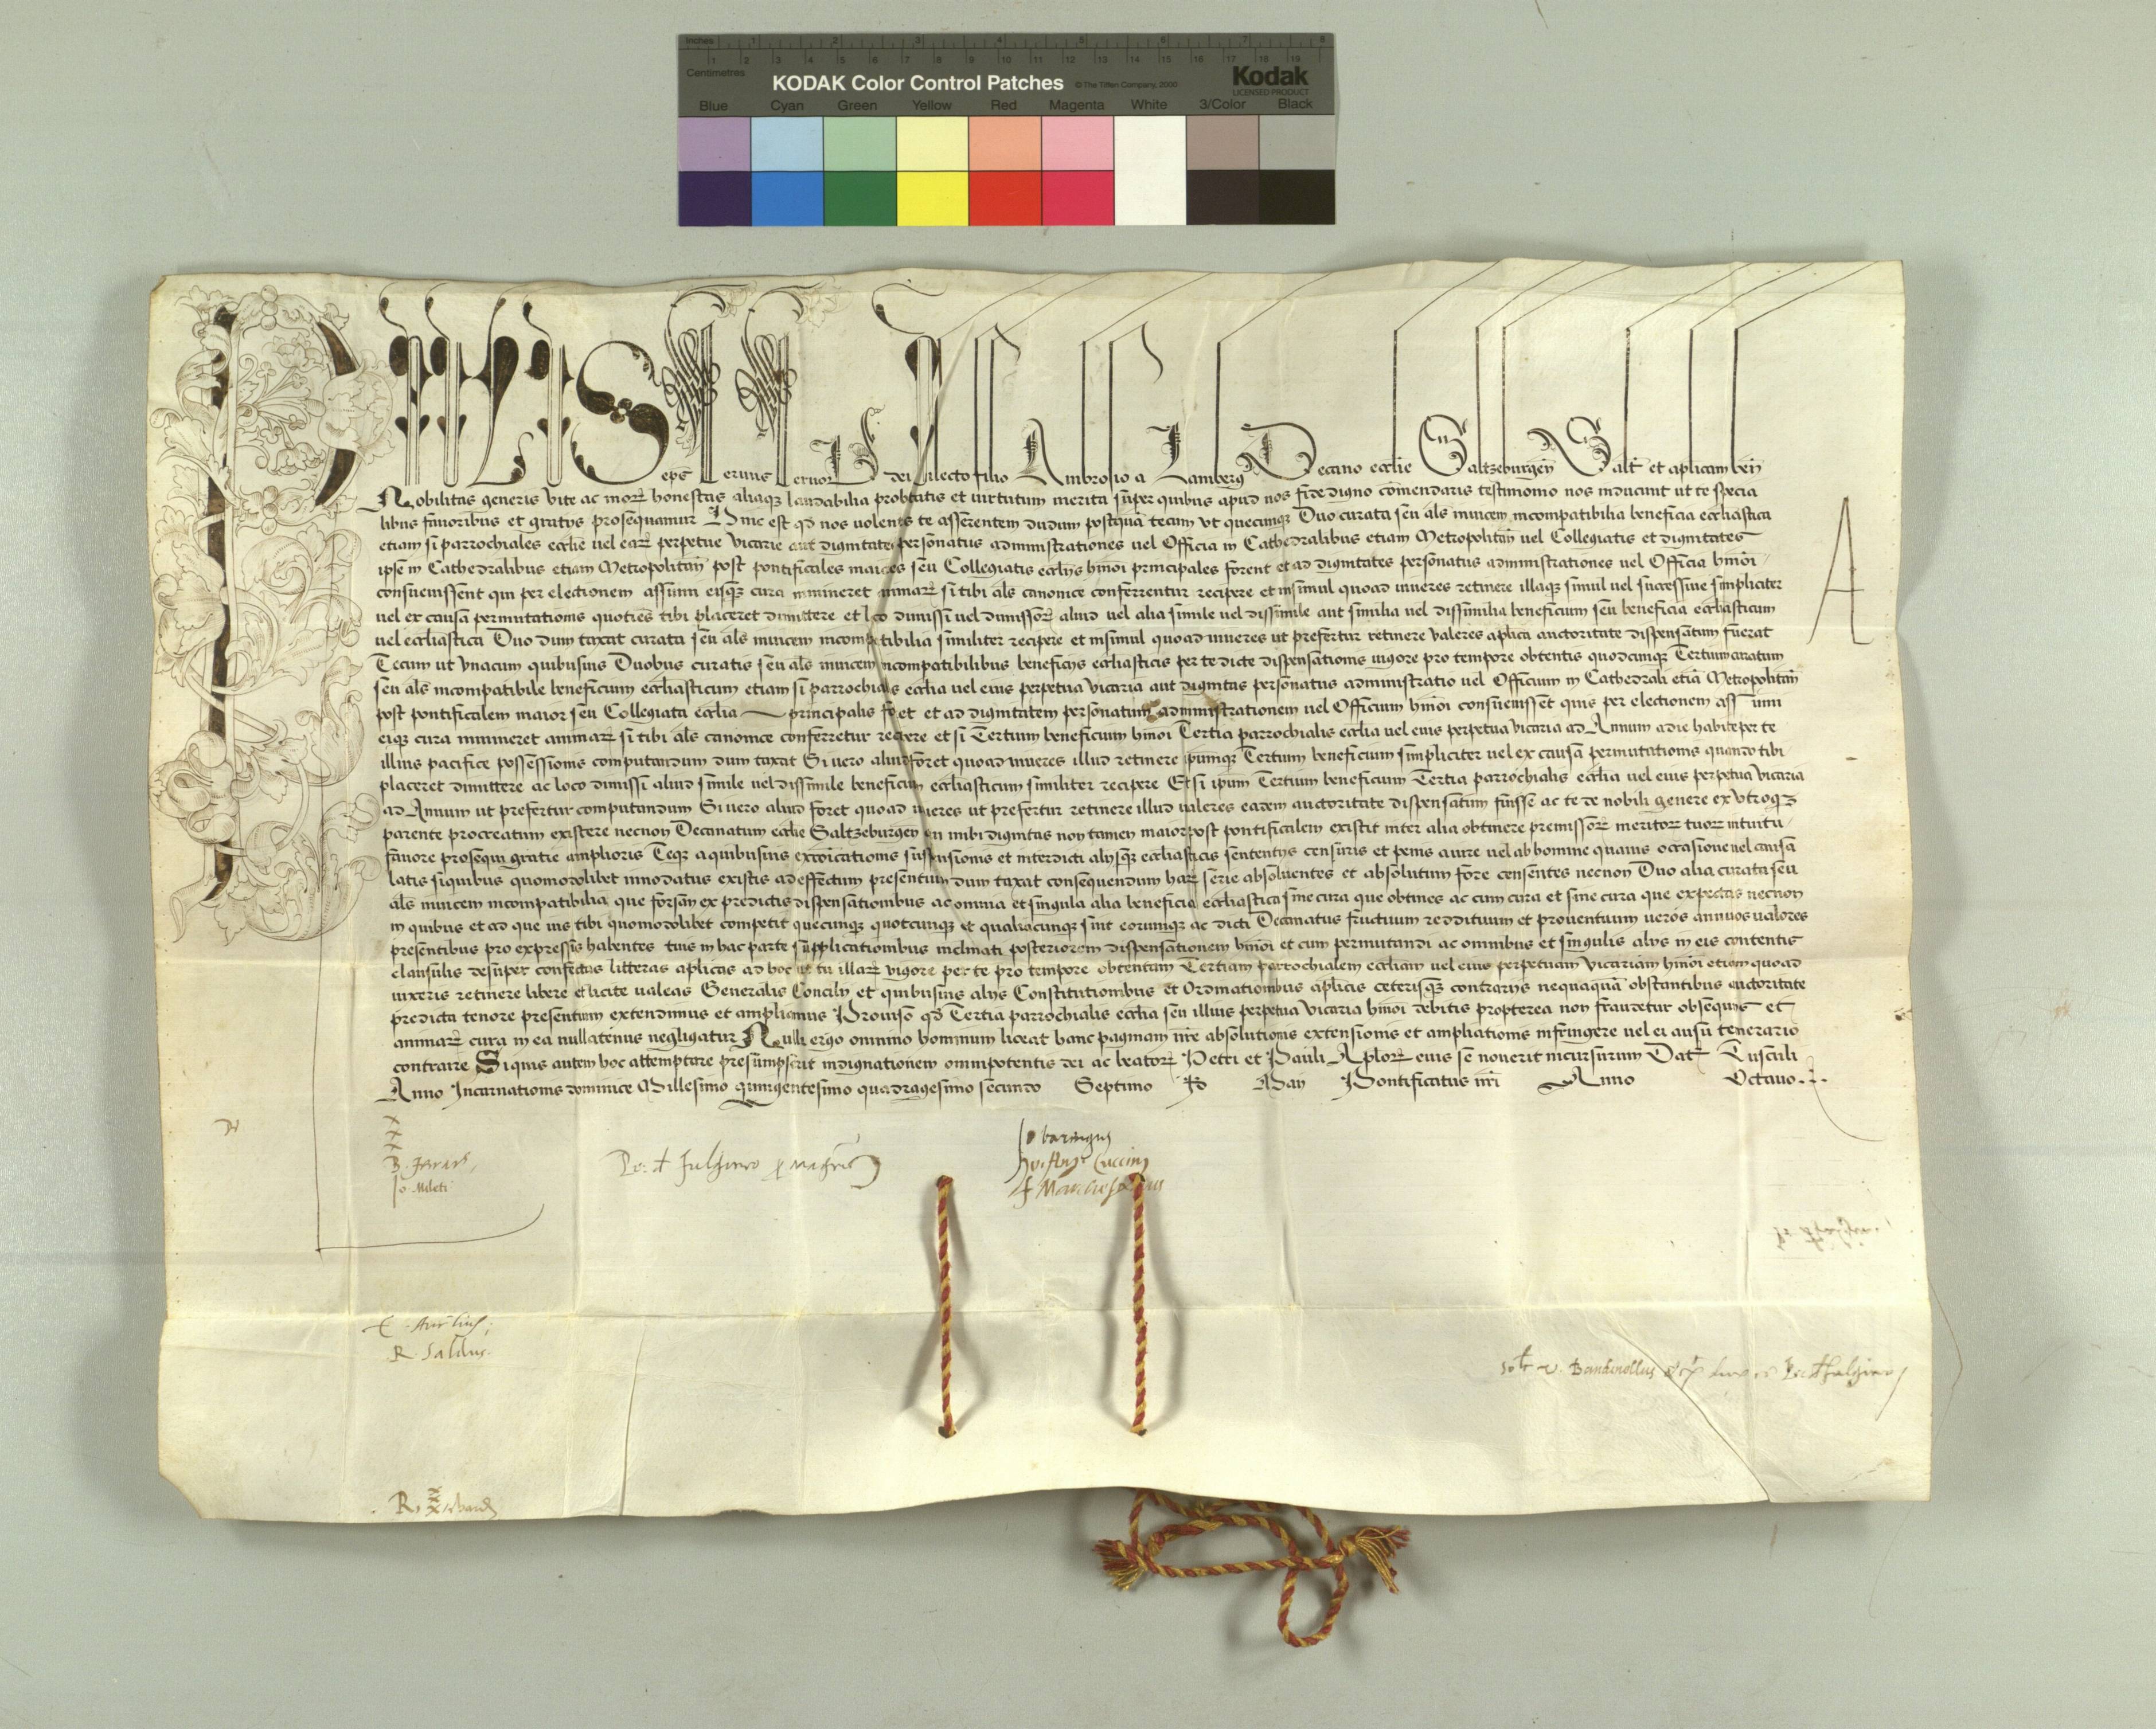 Inches 1 2 3 4 5 6 7 8
Centimetres 1 2 3 4 5 6 7 8 9 10 11 12 13 14 15 16 17 18 19
KODAK Color Control Patches © The Tiffen Company, 2000 Kodak
LICENSED PRODUCT
Blue Cyan Green Yellow Red Magenta White 3/Color Black
PAULUS eps servus servor dei Dilecto filio Ambrosio a Lamberg Decano ecclie Saltzeburgen Salt et aplicam ben
Nobilitas generis vite ac mor honestas aliaq laudabilia probitatis et virtutum merita super quibus apud nos fidedigno comendaris testimonio nos inducunt ut te specia
libus favoribus et gratijs prosequamur Hinc est qd nos volentes te asserentem dudum postqua tecum vt quecunq Duo curata seu als invicem incompatibilia beneficia ecclesiastica
etiam si parrochiales ecclie vel ear perpetue vicarie aut dignitates personatus administrationes vel Officia in Cathedralibus etiam Metropolitan vel Collegiatis et dignitates
ipse in Cathedralibus etiam Metropolitan post pontificales maiores seu Collegiatis ecclijs hmoi principales forent et ad dignitates personatus administrationes vel Officia hmoi
consuevissent qui per electionem assumi eisq cura immineret animar si tibi als canonice conferrentur recipere et insimul quoad viveres retinere illaq simul vel successive simpliciter
vel ex causa permutationis quoties tibi placeret dimittere et loco dimissi vel dimissor aliud vel alia simile vel dissimile aut similia vel dissimilia beneficium seu beneficia ecclesiasticum
vel ecclesiastica Duo dum taxat curata seu als invicem incompatibilia similiter recipere et insimul quoad viveres ut prefertur retinere valeres aplica auctoritate dispensatum fuerat
Tecum ut vnacum quibusvis Duobus curatis seu als invicem incompatibilibus beneficijs ecclesiasticis per te dicte dispensationis vigore pro tempore obtentis quodcunq Tertium curatum
seu als incompatibile beneficium ecclesiasticum etiam si parrochialis ecclia vel eius perpetua vicaria aut dignitas personatus administratio vel Officium in Cathedrali etia Metropolitan
post pontificalem maior seu Collegiata ecclia principalis foret et ad dignitatem personatum administrationem vel Officium hmoi consuevisset quis per electionem assumi
eiq cura immineret animar si tibi als canonice conferretur recipere et si Tertium beneficium hmoi Tertia parrochialis ecclia vel eius perpetua vicaria ad Annum a die habite per te
illius pacifice possessionis computandum dum taxat Si vero aliud foret quoad viveres illud retinere ipumq Tertium beneficium simpliciter vel ex causa permutationis quando tibi
placeret dimittere ac loco dimissi aliud simile vel dissimile beneficium ecclesiasticum similiter recipere Et si ipum Tertium beneficium Tertia parrochialis ecclia vel eius perpetua vicaria
ad Annum ut prefertur computandum Si vero aliud foret quoad viveres ut prefertur retinere illud valeres eadem auctoritate dispensatum fuisse ac te de nobili genere ex vtroq
parente procreatum existere necnon Decanatum ecclie Saltzeburgen qui inibi dignitas non tamen maior post pontificalem existit inter alia obtinere premissor meritor tuor intuitu
favore prosequi gratie amplioris Teq a quibusvis excoicationis suspensionis et interdicti alijsq ecclesiasticis sententijs censuris et penis a iure vel ab homine quavis occasione vel causa
latis siquibus quomodolibet innodatus existis ad effectum presentium dum taxat consequendum har serie absolventes et absolutum fore censentes necnon Duo alia curata seu
als invicem incompatibilia que forsan ex predictis dispensationibus ac omnia et singula alia beneficia ecclesiastica sine cura que obtines ac cum cura et sine cura que expectas necnon
in quibus et ad que ius tibi quomodolibet competit quecunq quotcunq et qualiacunq sint eorumq ac dicti Decanatus fructuum reddituum et proventuum veros annuos valores
presentibus pro expressis habentes tuis in hac parte supplicationibus inclinati posteriorem dispensationem hmoi et cum permutandi ac omnibus et singulis alijs in eis contentis
clausulis desuper confectas litteras aplicas ad hoc ut tu illar vigore per te pro tempore obtentam Tertiam parrochialem eccliam vel eius perpetuam vicariam hmoi etiam quoad
vixeris retinere libere et licite valeas Generalis Concilij et quibusvis alijs Constitutionibus et Ordinationibus aplicis ceterisq contrarijs nequaqua obstantibus auctoritate
predicta tenore presentium extendimus et ampliamus Proviso qd Tertia parrochialis ecclia seu illius perpetua vicaria hmoi debitis propterea non fraudetur obsequijs et
animar cura in ea nullatenus negligatur Nulli ergo omnino hominum liceat hanc paginam nre absolutionis extensionis et ampliationis infringere vel ei ausu temerario
contraire Siquis autem hoc attemptare presumpserit indignationem omnipotentis dei ac beator Petri et Pauli Aplor eius se noverit incursurum Dat Tusculi
Anno Incarnationis dominice Millesimo quingentesimo quadragesimo secundo Septimo Id Maij Pontificatus nri Anno Octavo
A
x
x
x
Jo. Mileti
Jo baringus
Cuccinus
R. Salvius
v. Bandinellus